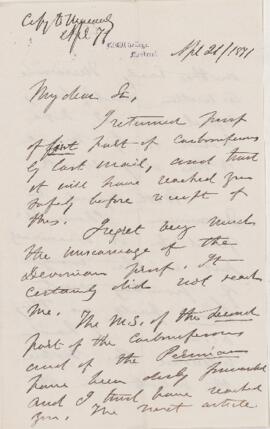 Copy to
Apl 71
McGill College
Montreal
Apl 21/1871
My dear Sir,
I returned proof
of first part of carboniferous
by last mail, and trust
it will have reached you
safely before receipt of
this. I regret very much
the miscarriage of the
Devonian proof. It
certainly did not reach
me.
The M.S. of the second
part of the carboniferous
and of the Permian
have been duly forwarded
and I trust have reached
you. The next article